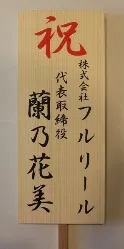 祝
株式会社フルリール
代表取締役
蘭乃花美